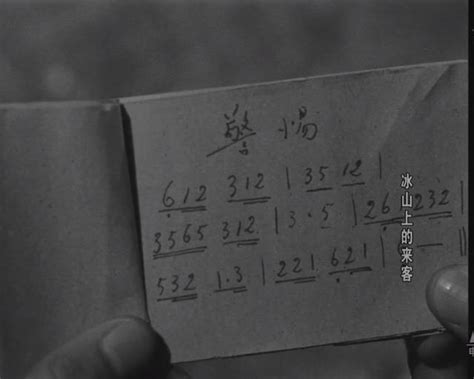 警惕
612 312 | 35 12 |
3565 312 | 3·5 | 26 232 |
532 1·3 | 221 621 | — ‖
冰山上的来客